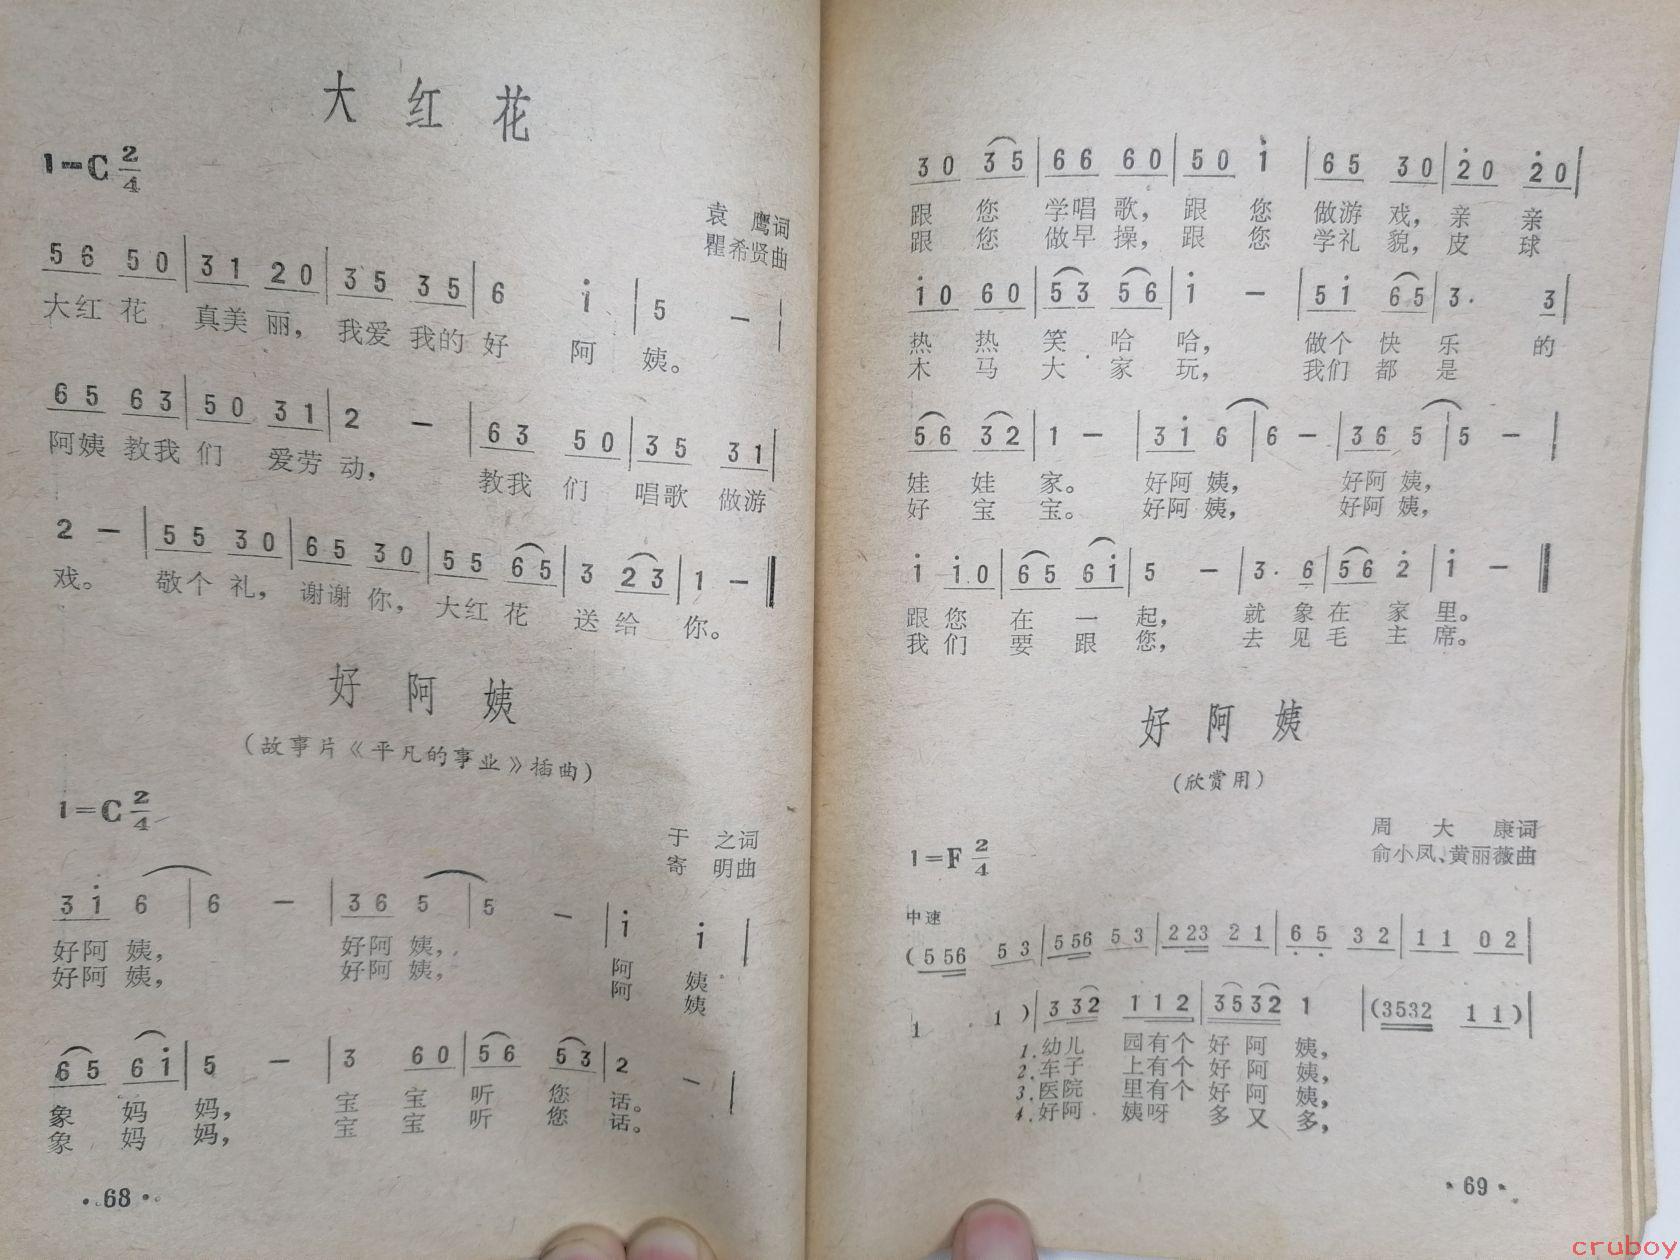 大红花
1=C 2/4
袁 鹰词
瞿希贤曲
56 50 | 31 20 | 35 35 | 6 i | 5 — |
大红 花 真美 丽， 我爱 我的 好 阿 姨。
65 63 | 50 31 | 2 — | 63 50 | 35 31 |
阿姨 教我 们 爱劳 动， 教我 们 唱歌 做游
2 — | 55 30 | 65 30 | 55 65 | 3 23 | 1 — ‖
戏。 敬个 礼， 谢谢 你， 大红 花 送 给 你。
好阿姨
（故事片《平凡的事业》插曲）
1=C 2/4
于 之词
寄 明曲
3i 6 | 6 — | 36 5 | 5 — | i i |
好阿 姨， 好阿 姨， 阿 姨
好阿 姨， 好阿 姨， 阿 姨
65 6i | 5 — | 3 60 | 56 53 | 2 — |
象 妈 妈， 宝 宝 听 您 话。
象 妈 妈， 宝 宝 听 您 话。
·68·
30 35 | 66 60 | 50 i | 65 30 | 2̇0 2̇0 |
跟 您 学唱 歌， 跟 您 做游 戏， 亲 亲
跟 您 做早 操， 跟 您 学礼 貌， 皮 球
i0 60 | 53 56 | i — | 5i 65 | 3· 3 |
热 热 笑 哈 哈， 做个 快 乐 的
木 马 大 家 玩， 我们 都 是
56 32 | 1 — | 3i 6 | 6 — | 36 5 | 5 — |
娃 娃 家。 好阿 姨， 好阿 姨，
好 宝 宝。 好阿 姨， 好阿 姨，
i i0 | 65 6i | 5 — | 3· 6 | 56 2̇ | i — ‖
跟 您 在 一 起， 就 象 在 家 里。
我 们 要 跟 您， 去 见 毛 主 席。
好阿姨
（欣赏用）
1=F 2/4
周 大 康词
俞小凤、黄丽薇曲
中速
（556 53 | 556 53 | 223 21 | 6̣5̣ 32 | 11 02 |
1 1 ）| 332 112 | 3532 1 | （3532 11）|
1.幼儿 园有个 好 阿 姨，
2.车子 上有个 好 阿 姨，
3.医院 里有个 好 阿 姨，
4.好阿 姨呀 多 又 多，
·69·
cruboy